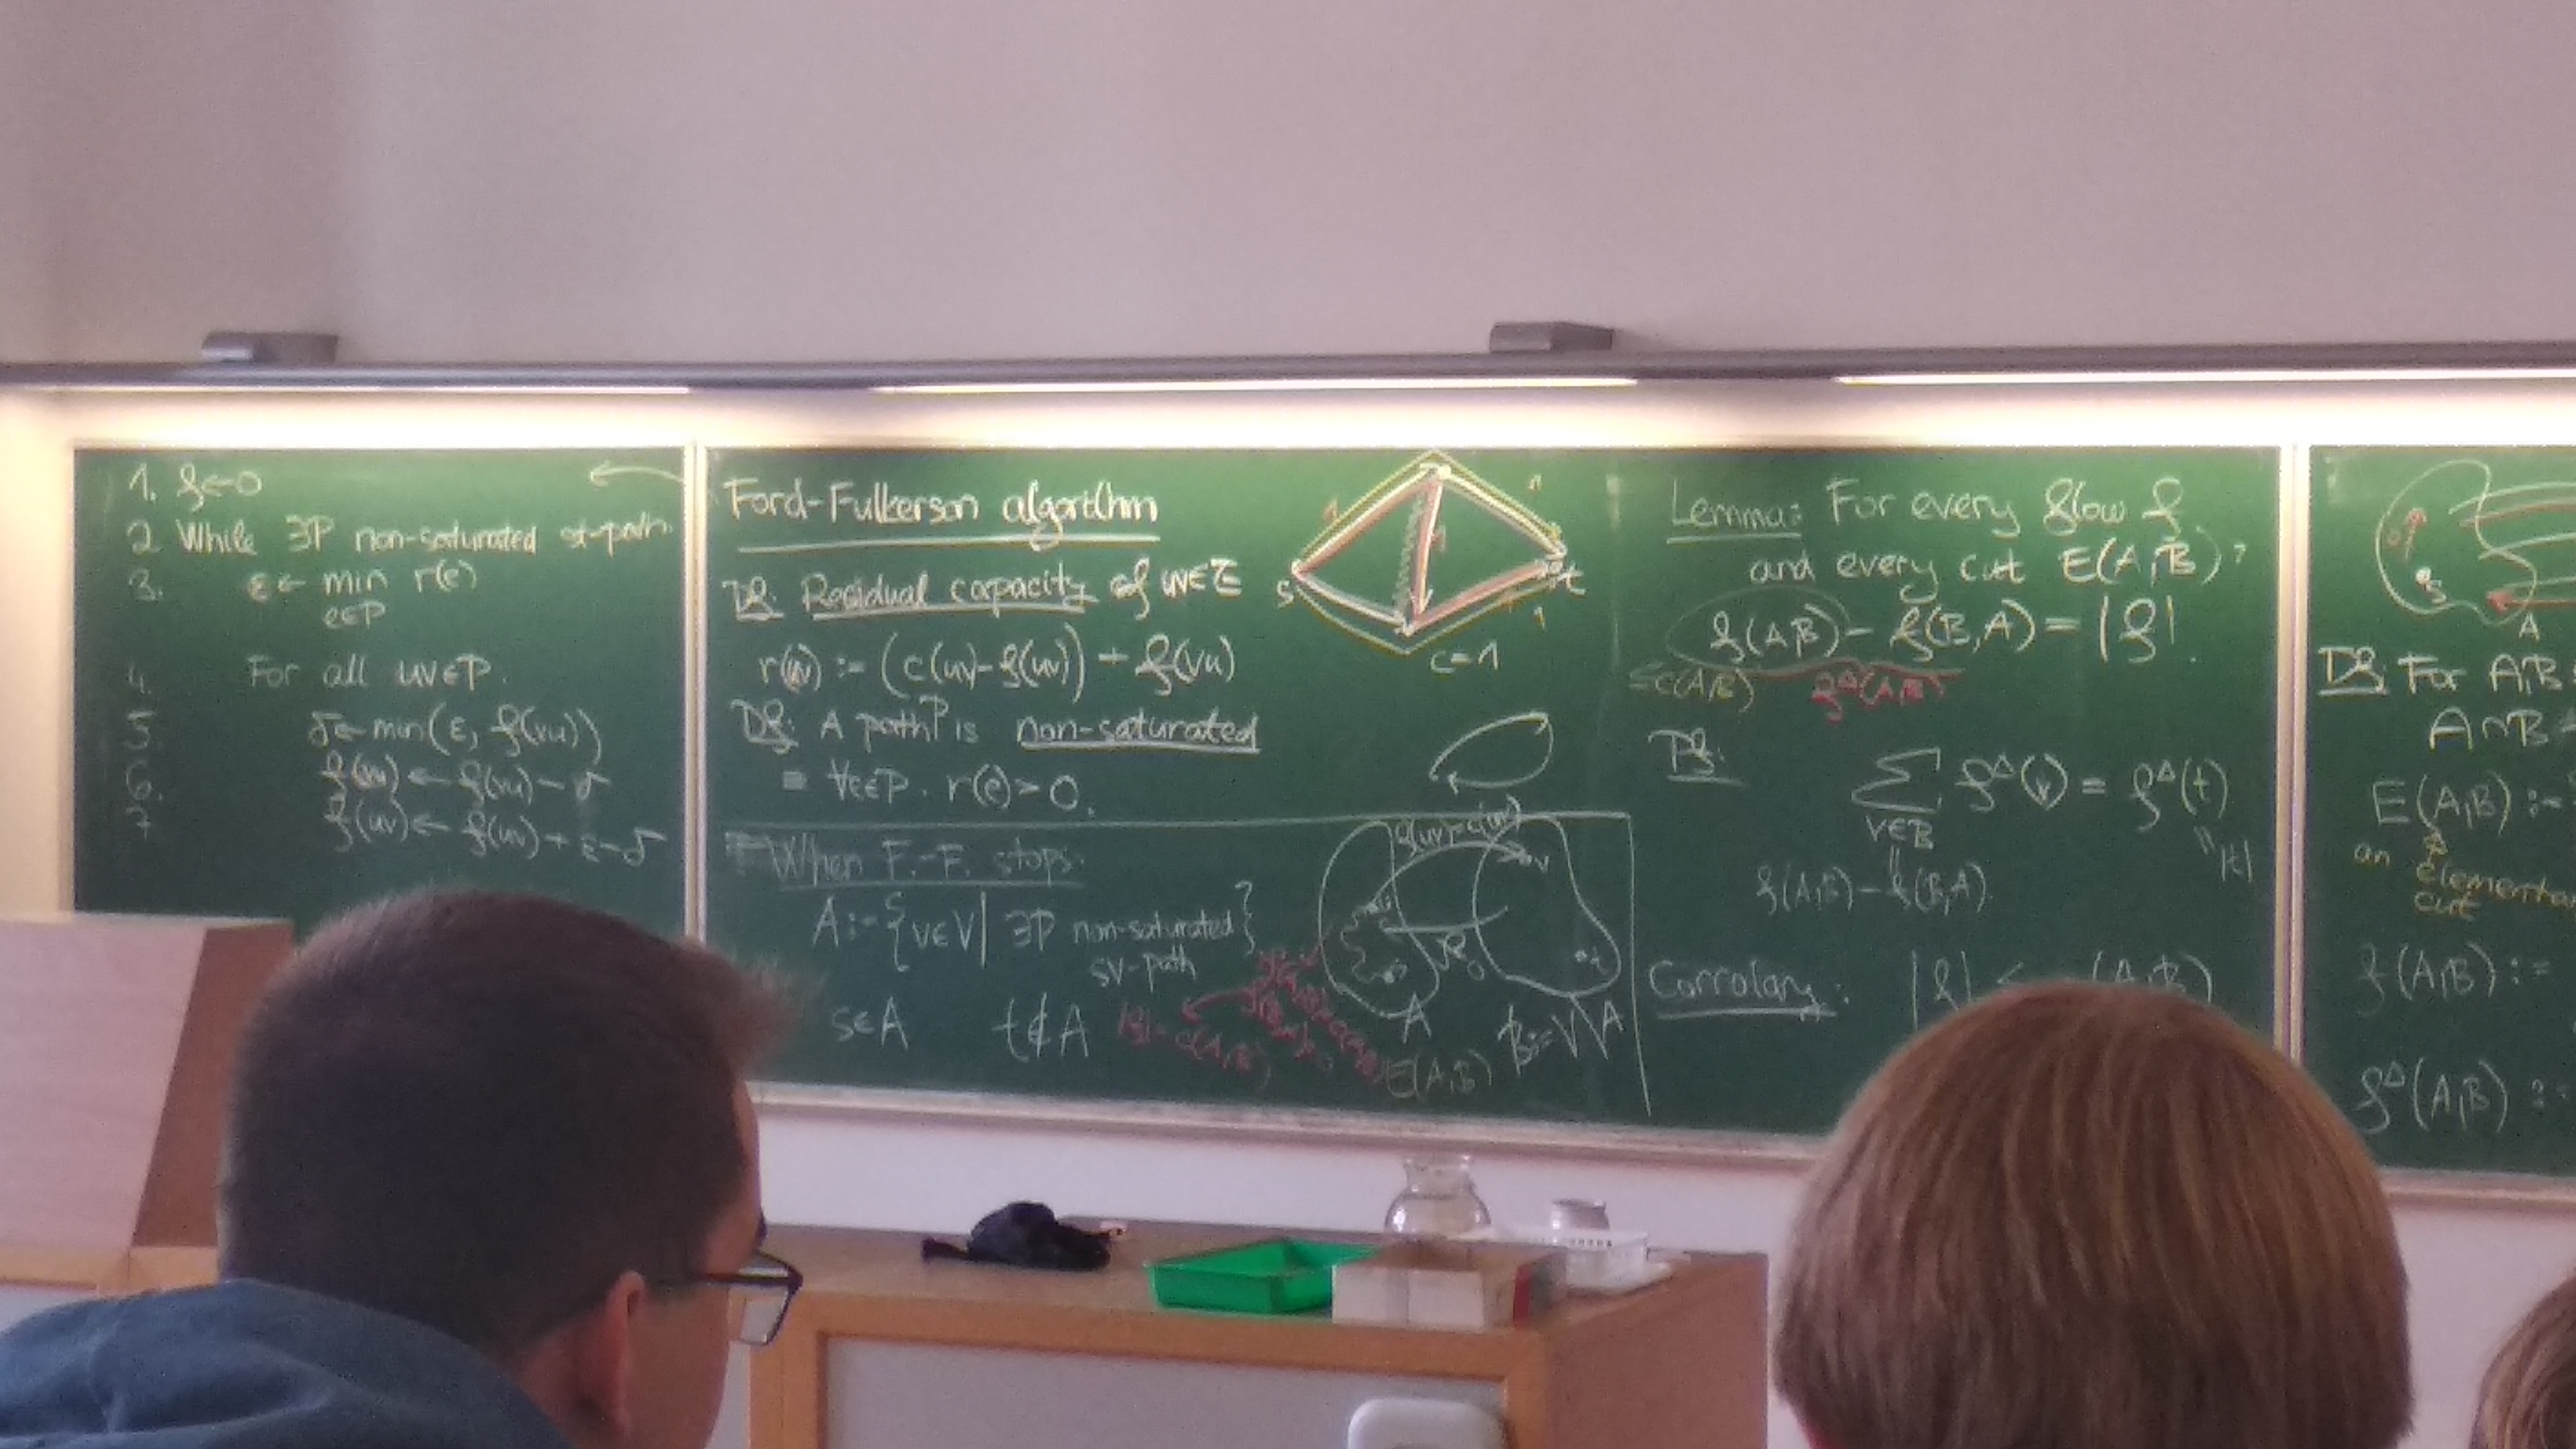 1. f ← 0
2. While ∃P non-saturated st-path:
3. ε ← min r(e)
e∈P
4. For all uv∈P:
5. δ ← min(ε, f(vu))
6. f(vu) ← f(vu) - δ
7. f(uv) ← f(uv) + ε - δ
Ford-Fulkerson algorithm
Df: Residual capacity of uv∈E
r(uv) := (c(uv) - f(uv)) + f(vu)
Df: A path P is non-saturated
≡ ∀e∈P: r(e) > 0.
s
t
1
1
1
1
c=1
When F.-F. stops:
A := {v∈V | ∃P non-saturated
sv-path}
s∈A t∉A
f(uv)=c(uv)
v
s
t
0
A
B:=V\A
E(A,B)
|f| = c(A,B)
Lemma: For every flow f
and every cut E(A,B):
f(A,B) - f(B,A) = |f|.
≤c(A,B) f^Δ(A,B)
Pf:
∑ f^Δ(v) = f^Δ(t)
v∈B
|f|
f(A,B) - f(B,A).
Corrolary: |f| ≤ (A,B)
s
A
Df: For A,B
A∩B =
E(A,B) :=
an
elementar
cut
f(A,B) :=
f^Δ(A,B) :=